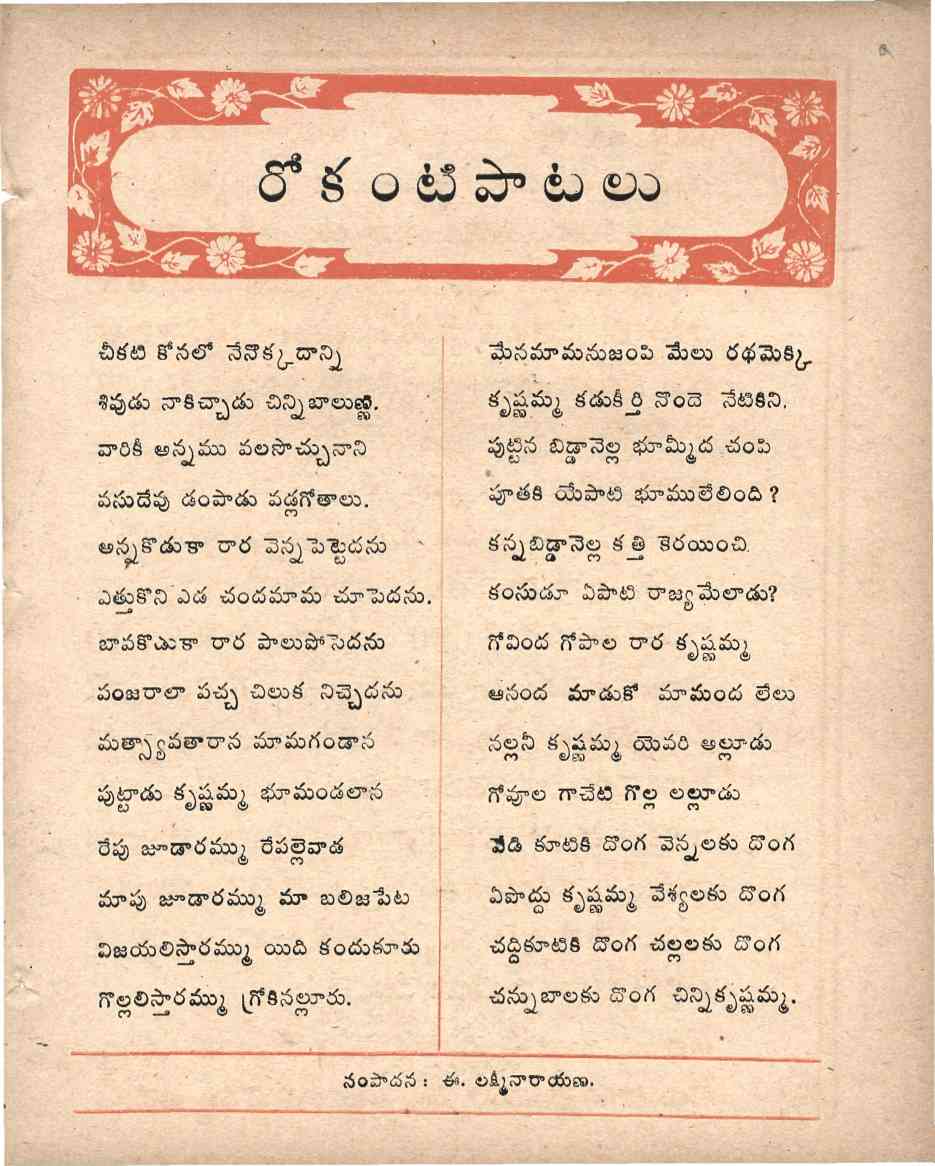 రోకంటిపాటలు
చీకటి కోనలో నేనొక్కదాన్ని
శివుడు నాకిచ్చాడు చిన్నిబాలుణ్ణి.
వారికీ అన్నము వలసొచ్చునాని
వసుదేవు డంపాడు వడ్లగోతాలు.
అన్నకొడుకా రార వెన్నపెట్టెదను
ఎత్తుకొని ఎడ చందమామ చూపెదను.
బావకొడుకా రార పాలుపోసెదను
పంజరాలా పచ్చ చిలుక నిచ్చెదను
మత్స్యావతారాన మామగండాన
పుట్టాడు కృష్ణమ్మ భూమండలాన
రేపు జూడారమ్ము రేపల్లెవాడ
మాపు జూడారమ్ము మా బలిజపేట
విజయలిస్తారమ్ము యిది కందుకూరు
గొల్లలిస్తారమ్ము గ్రోకినల్లూరు.
మేనమామనుజంపి మేలు రథమెక్కి
కృష్ణమ్మ కడుకీర్తి నొందె నేటికిని.
పుట్టిన బిడ్డానెల్ల భూమ్మీద చంపి
పూతకి యేపాటి భూములేలింది?
కన్నబిడ్డానెల్ల కత్తి కెరయించి
కంసుడూ ఏపాటి రాజ్యమేలాడు?
గోవింద గోపాల రార కృష్ణమ్మ
ఆనంద మాడుకో మామంద లేలు
నల్లనీ కృష్ణమ్మ యెవరి అల్లూడు
గోవూల గాచేటి గొల్ల లల్లూడు
వేడి కూటికి దొంగ వెన్నలకు దొంగ
ఏపొద్దు కృష్ణమ్మ వేశ్యలకు దొంగ
చద్దికూటికి దొంగ చల్లలకు దొంగ
చన్నుబాలకు దొంగ చిన్నికృష్ణమ్మ.
సంపాదన : ఈ. లక్ష్మీనారాయణ.